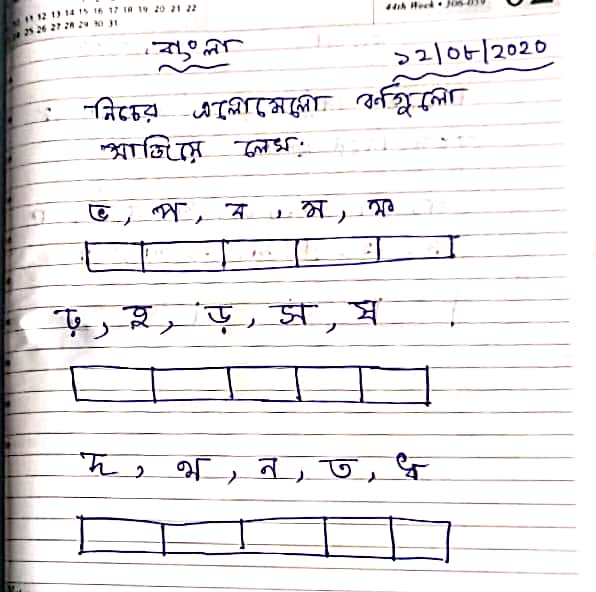 11 12 13 14 15 16 17 18 19 20 21 22
25 26 27 28 29 30 31
44th Week •
বাংলা
১২/০৮/2020
নিচের এলোমেলো বর্নগুলো
সাজিয়ে লেখ:
ভ, প, ব, ম, ফ
ঢ়, হ, ড়, স, ষ
দ, থ, ন, ত, ধ